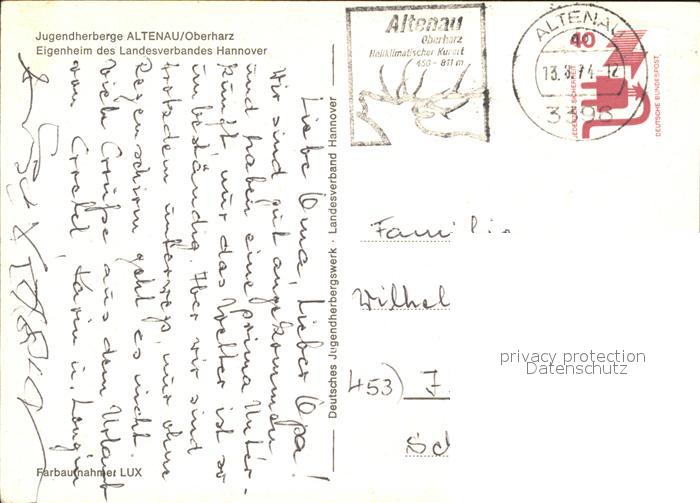 Jugendherberge ALTENAU/Oberharz
Eigenheim des Landesverbandes Hannover
Liebe Oma, lieber Opa!
Wir sind gut angekommen
und haben eine prima Unter-
kunft, nur das Wetter ist so
unbeständig. Aber wir sind
trotzdem unterwegs, nur ohne
Regenschirm geht es nicht.
Viele Grüße aus dem Urlaub
von Gretel, Karin u.
Farbaufnahme: LUX
Deutsches Jugendherbergswerk · Landesverband Hannover
Altenau
Oberharz
Heilklimatischer Kurort
450 - 811 m
ALTENAU
13. 74-12
3396
40
JEDERZEIT SICHERHEIT
DEUTSCHE BUNDESPOST
Famili
Wilhel
453)
Sc
privacy protection
Datenschutz